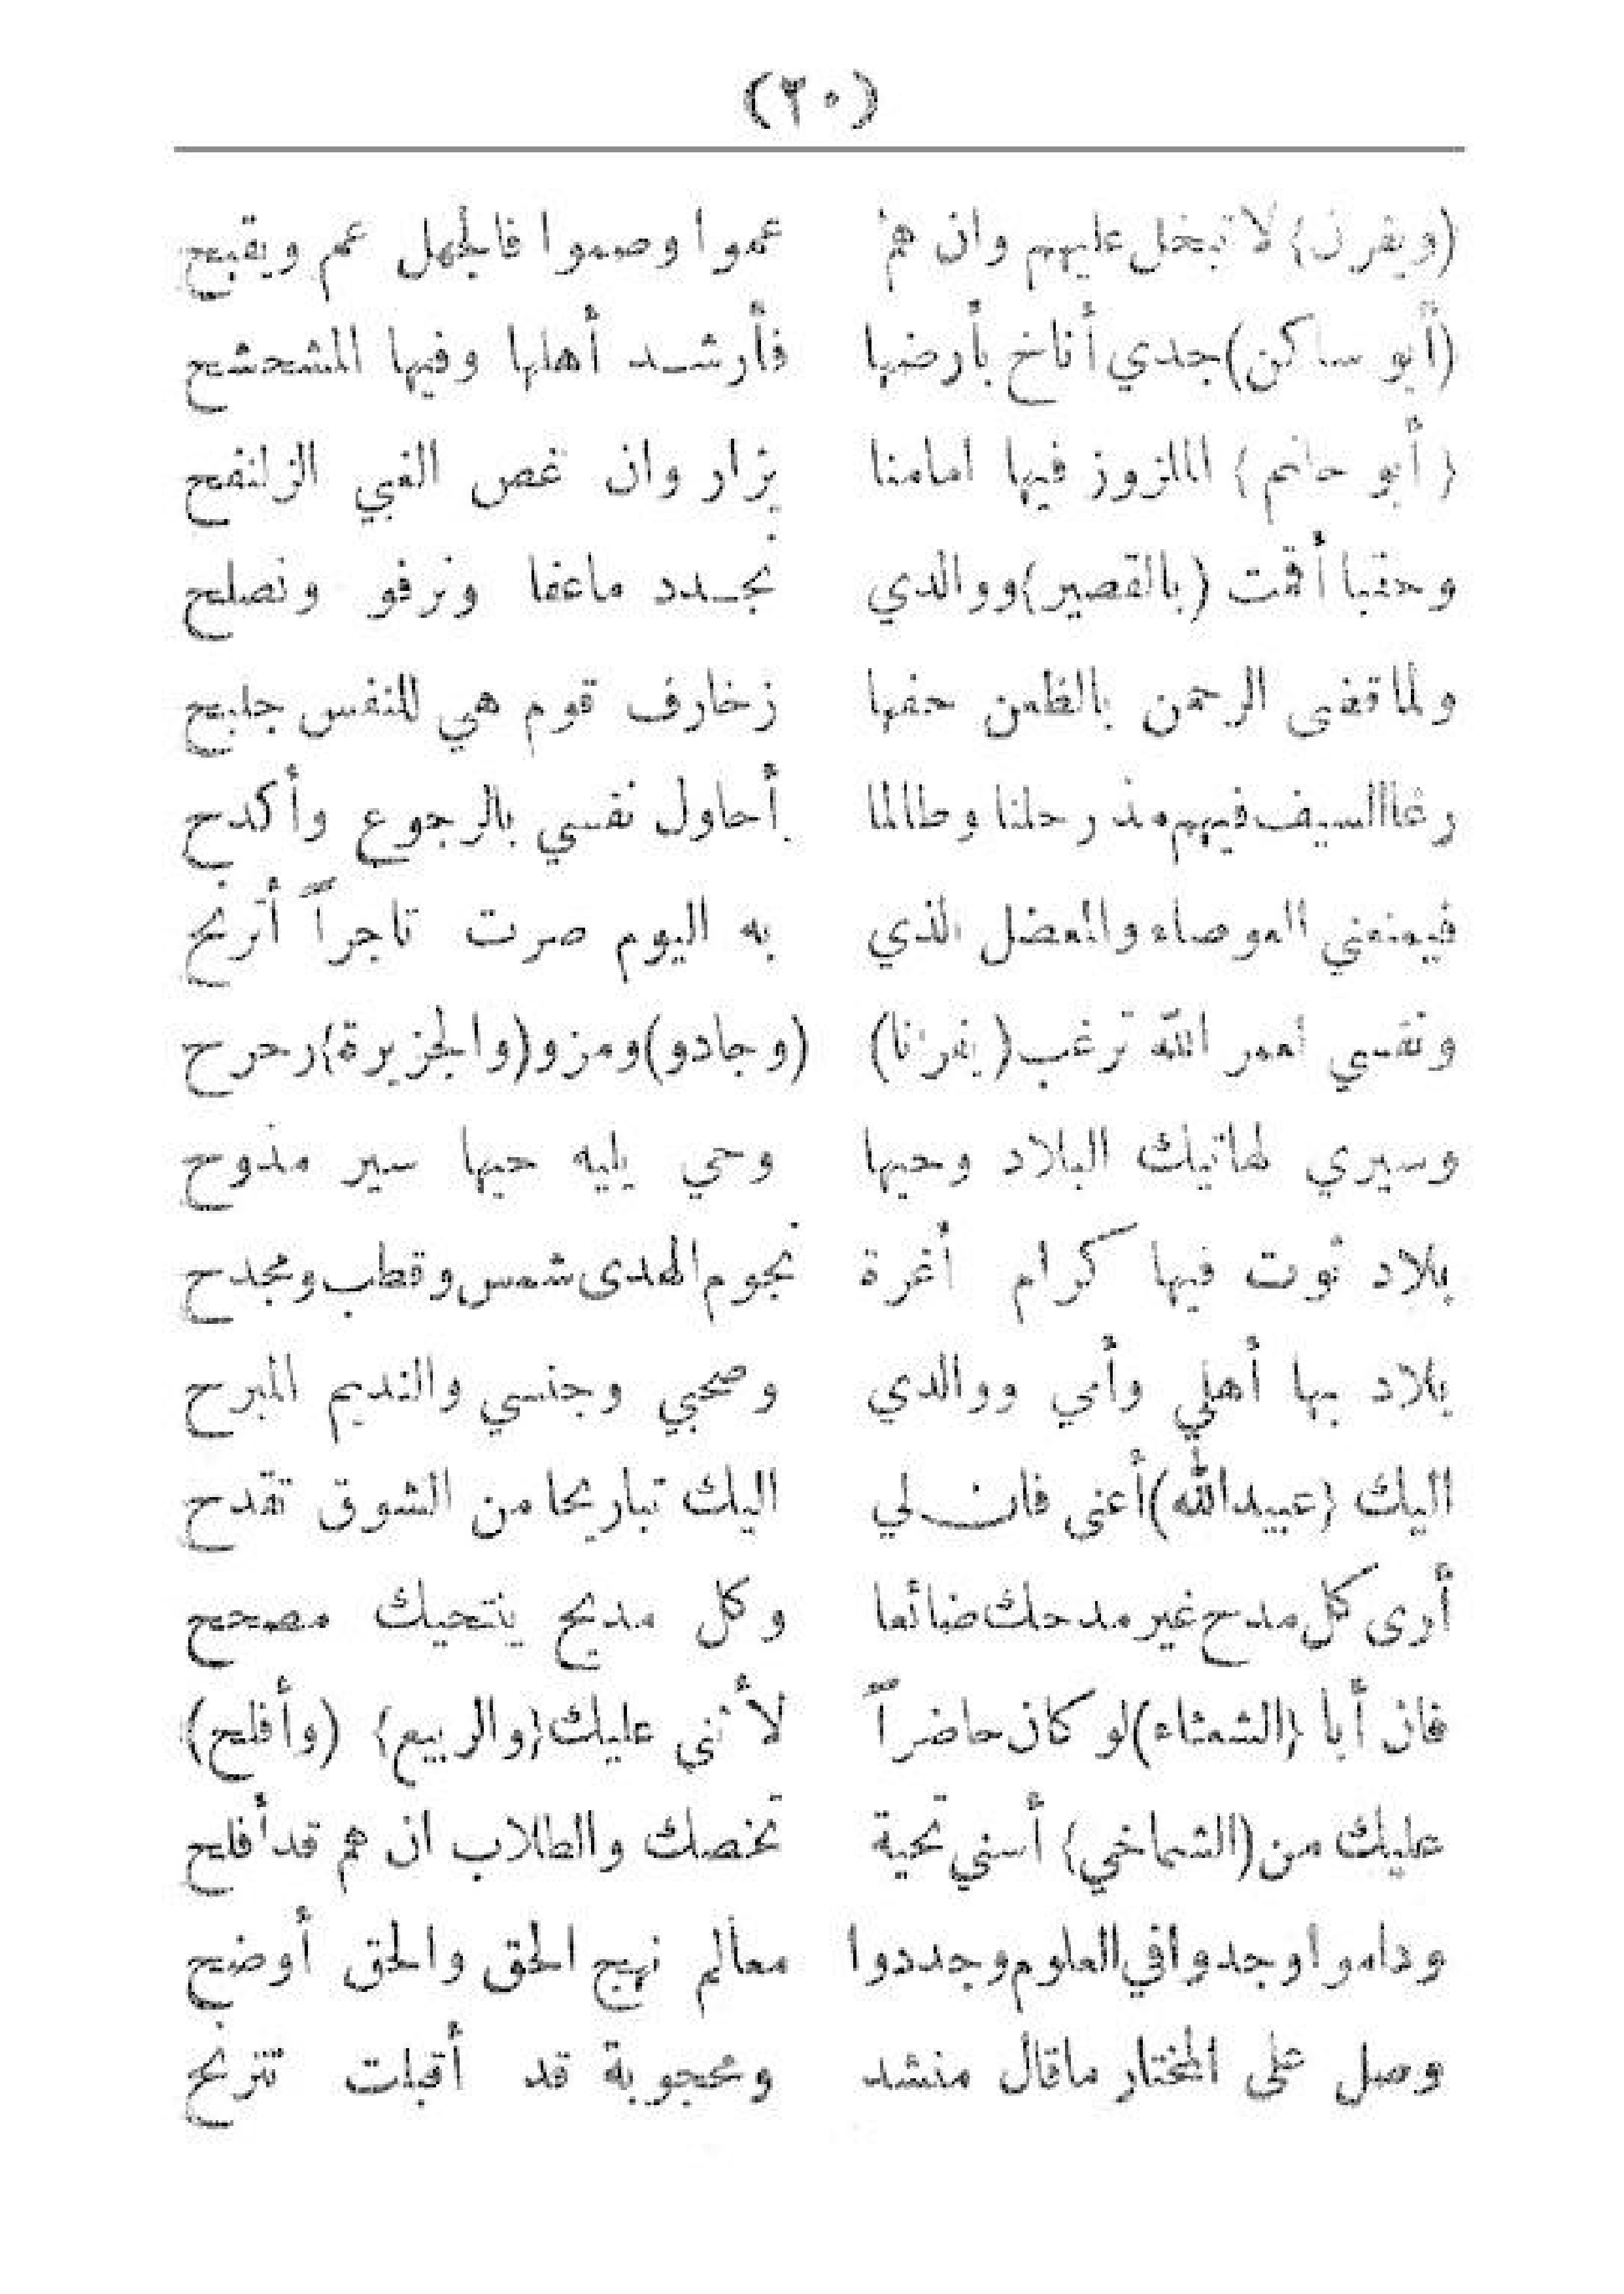 (٣٠)
(ويفرن) لا تبخل عليهم وان هم عموا وصموا فالجهل عم ويقبح
(أبو ساكن) جدي أناخ بأرضها فأرشد أهلها وفيها المشحشح
(أبو حاتم) الملزوز فيها امامنا يزار وان غص الغبي الزلنقح
وحقبا أقمت (بالقصير) ووالدي نجدد ماعفا ونرفو ونصلح
ولما قضى الرحمن بالظعن حفها زخارف قوم هي للنفس جلبح
رغا السيف فيهم مذ رحلنا وطالما أحاول نفسي بالرجوع وأكدح
فيمنعني العوصاء والمعضل الذي به اليوم صرت تاجراً أتربح
ونفسي لعمر الله ترغب (يفرنا) (وجادو) ومزو (والجزيرة) رحرح
وسيري لهاتيك البلاد وحبها وحي يليه حبها سير مذوح
بلاد ثوت فيها كرام أغرة نجوم الهدى شمس وقطب ومجدح
بلاد بها أهلي وأمي ووالدي وصحبي وجنسي والنديم المبرح
اليك (عبيدالله) أعنى فان لي اليك تباريحا من الشوق تقدح
أرى كل مدح غير مدحك ضائعا وكل مديح ينتحيك مصحح
فان أبا (الشعثاء) لو كان حاضراً لأثنى عليك (والربيع) (وأفلح)
عليك من (الشماخي) أسنى تحية تخصك والطلاب ان هم قد أفلح
وداموا وجدوا في العلوم وجددوا معالم نهج الحق والحق أوضح
وصل على المختار ماقال منشد ومحجوبة قد أقبلت تترنح